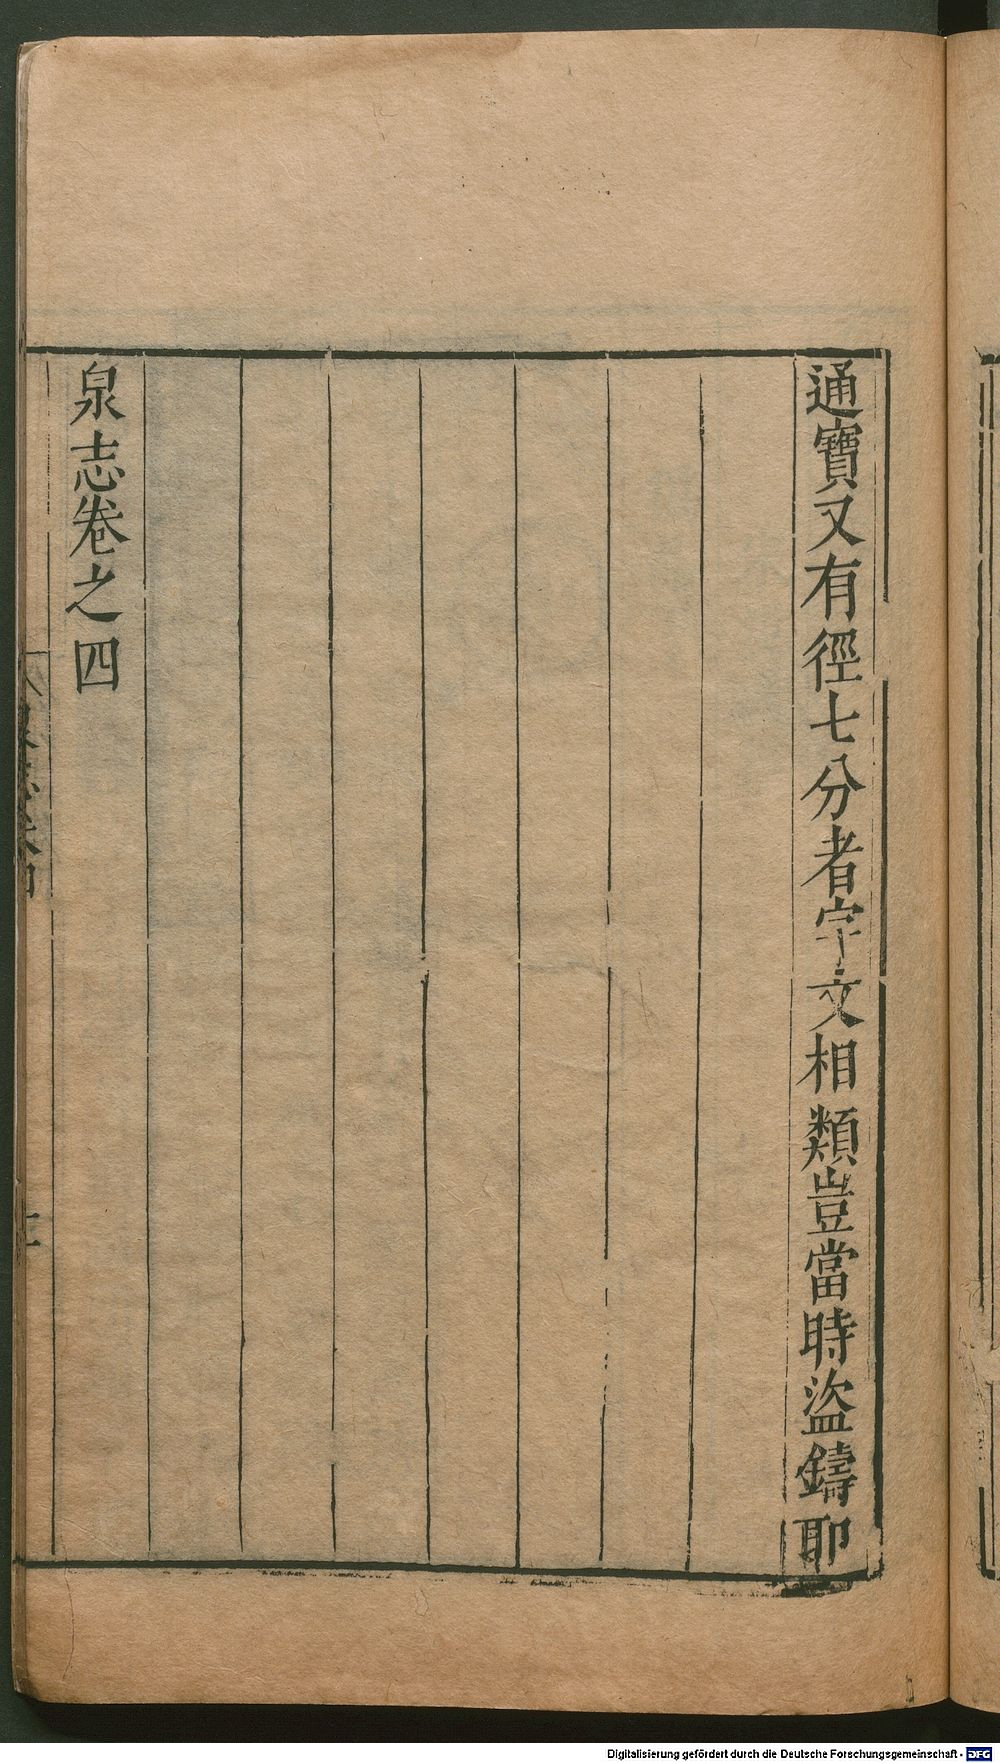 通寶又有徑七分者字文相類豈當時盜鑄耶
泉志卷之四
Digitalisierung gefördert durch die Deutsche Forschungsgemeinschaft - DFG